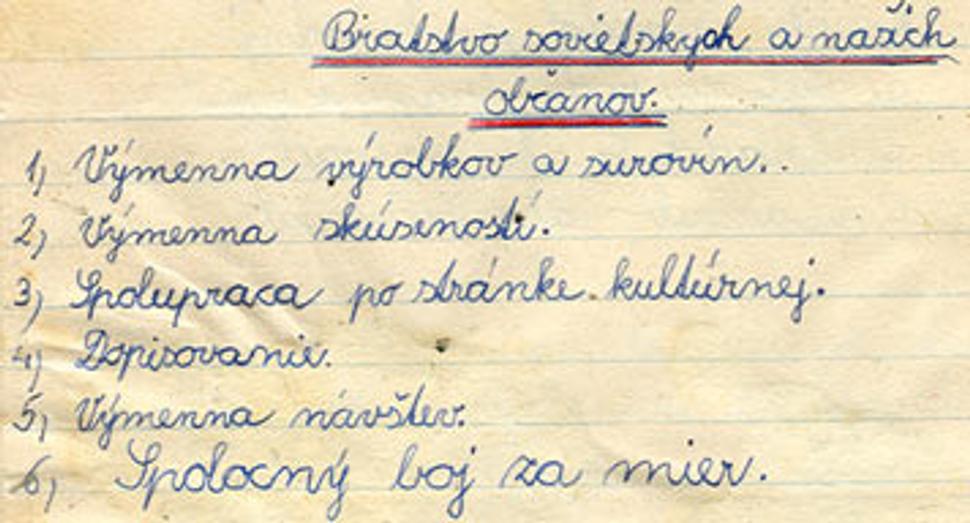 Bratstvo sovietskych a našich
občanov.
1, Výmenna výrobkov a surovín..
2, Výmenna skúseností.
3, Spolupraca po stránke kultúrnej.
4, Dopisovanie.
5, Výmenna návštev.
6, Spolocný boj za mier.